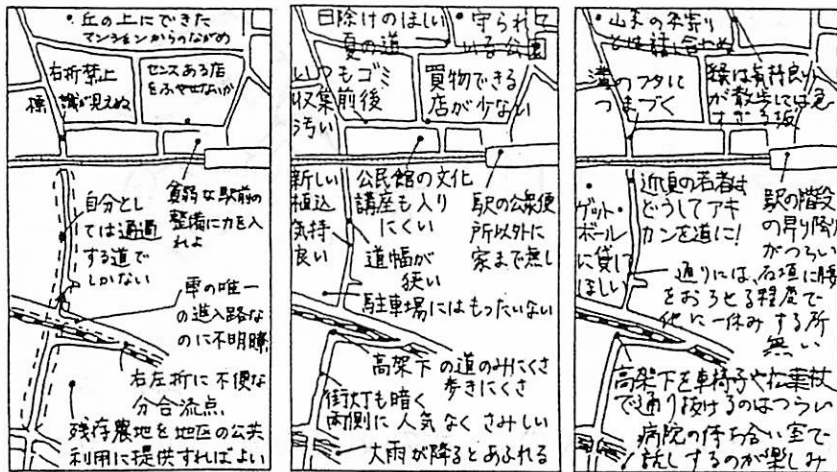 ・丘の上にできた
マンションからのながめ
右折禁止
標識が見えぬ
センスある店
をふやせないか
自分とし
ては通過
する道で
しかない
貧弱な駅前の
整備に力を入
れよ
車の唯一
の進入路な
のに不明瞭
右左折に不便な
分合流点
残存農地を地区の公共
利用に提供すればよい
日除けのほしい
夏の道
・守られ
いる公園
いつもゴミ
収集前後
汚い
買物できる
店が少ない
新しい
植込
気持
良い
公民館の文化
講座も入り
にくい
駅の公衆便
所以外に
家まで無し
道幅が
狭い
駐車場にはもったいない
高架下の道のみにくさ
歩きにくさ
街灯も暗く
両側に人気なくさみしい
大雨が降るとあふれる
溝のフタに
つまづく
緑は気持良い
が散歩には急
すぎる坂
ゲット
ボール
に貸して
ほしい
近頃の若者は
どうしてアキ
カンを道に!
駅の階段
の昇り降り
がつらい
通りには、石垣に腰
をおろせる程度で
他に一休みする所
無い
高架下を車椅子や松葉杖
で通り抜けるのはつらい
病院の待ち合い室で
話しするのが楽しみ